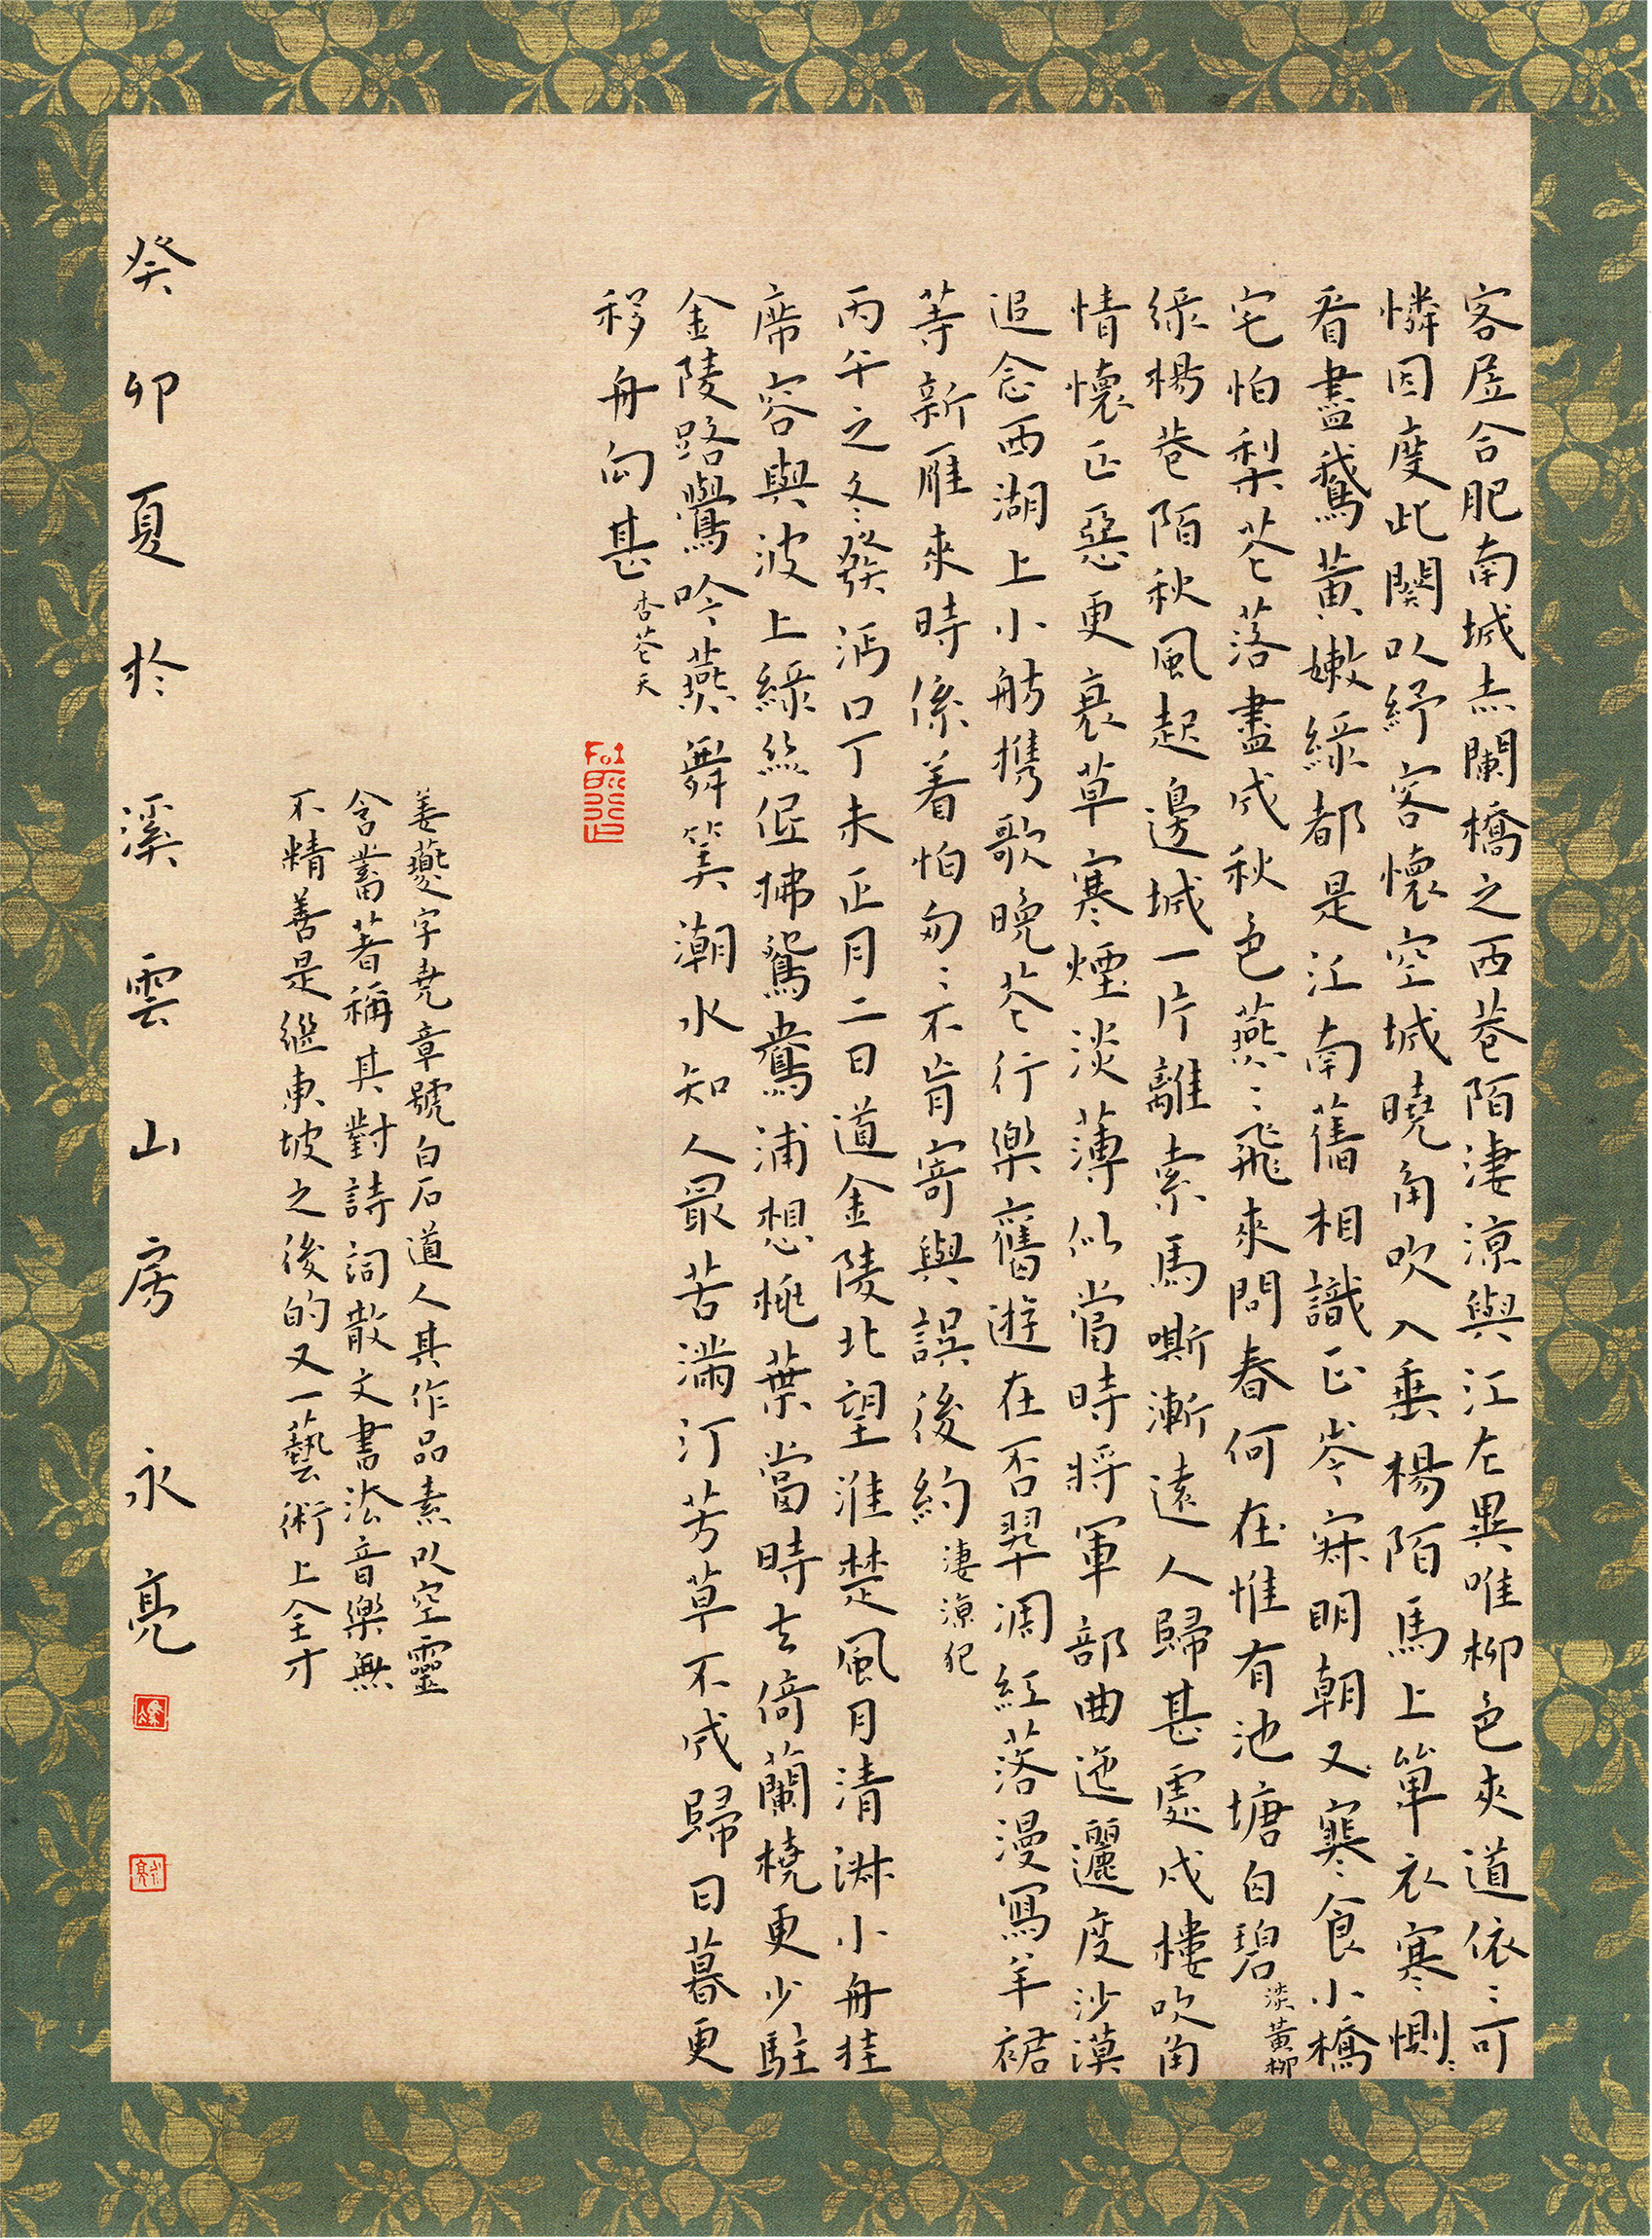 客居合肥南城赤闌橋之西巷陌淒涼與江左異唯柳色夾道依〻可
憐因度此闋以紓客懷空城曉角吹入垂楊陌馬上單衣寒惻〻
看盡鵞黃嫩綠都是江南舊相識正岑寂明朝又寒食小橋
宅怕梨花落盡成秋色燕〻飛來問春何在惟有池塘自碧 淡黃柳
綠楊巷陌秋風起邊城一片離索馬嘶漸遠人歸甚處戍樓吹角
情懷正惡更衰草寒煙淡薄似當時將軍部曲迤邐度沙漠
追念西湖上小舫攜歌晚花行樂舊遊在否翠凋紅落漫寫羊裙
等新雁來時係着怕匆〻不肯寄與誤後約 淒涼犯
丙午之冬發沔口丁未正月二日道金陵北望淮楚風月清淋小舟挂
席容與波上綠絲低拂鴛鴦浦想桃葉當時去倚蘭橈更少駐
金陵路鶯吟燕舞笑潮水知人最苦滿汀芳草不成歸日暮更
移舟向甚 杏花天
姜夔字堯章號白石道人其作品素以空靈
含蓄著稱其對詩詞散文書法音樂無
不精善是繼東坡之後的又一藝術上全才
癸卯夏於溪雲山房永亮